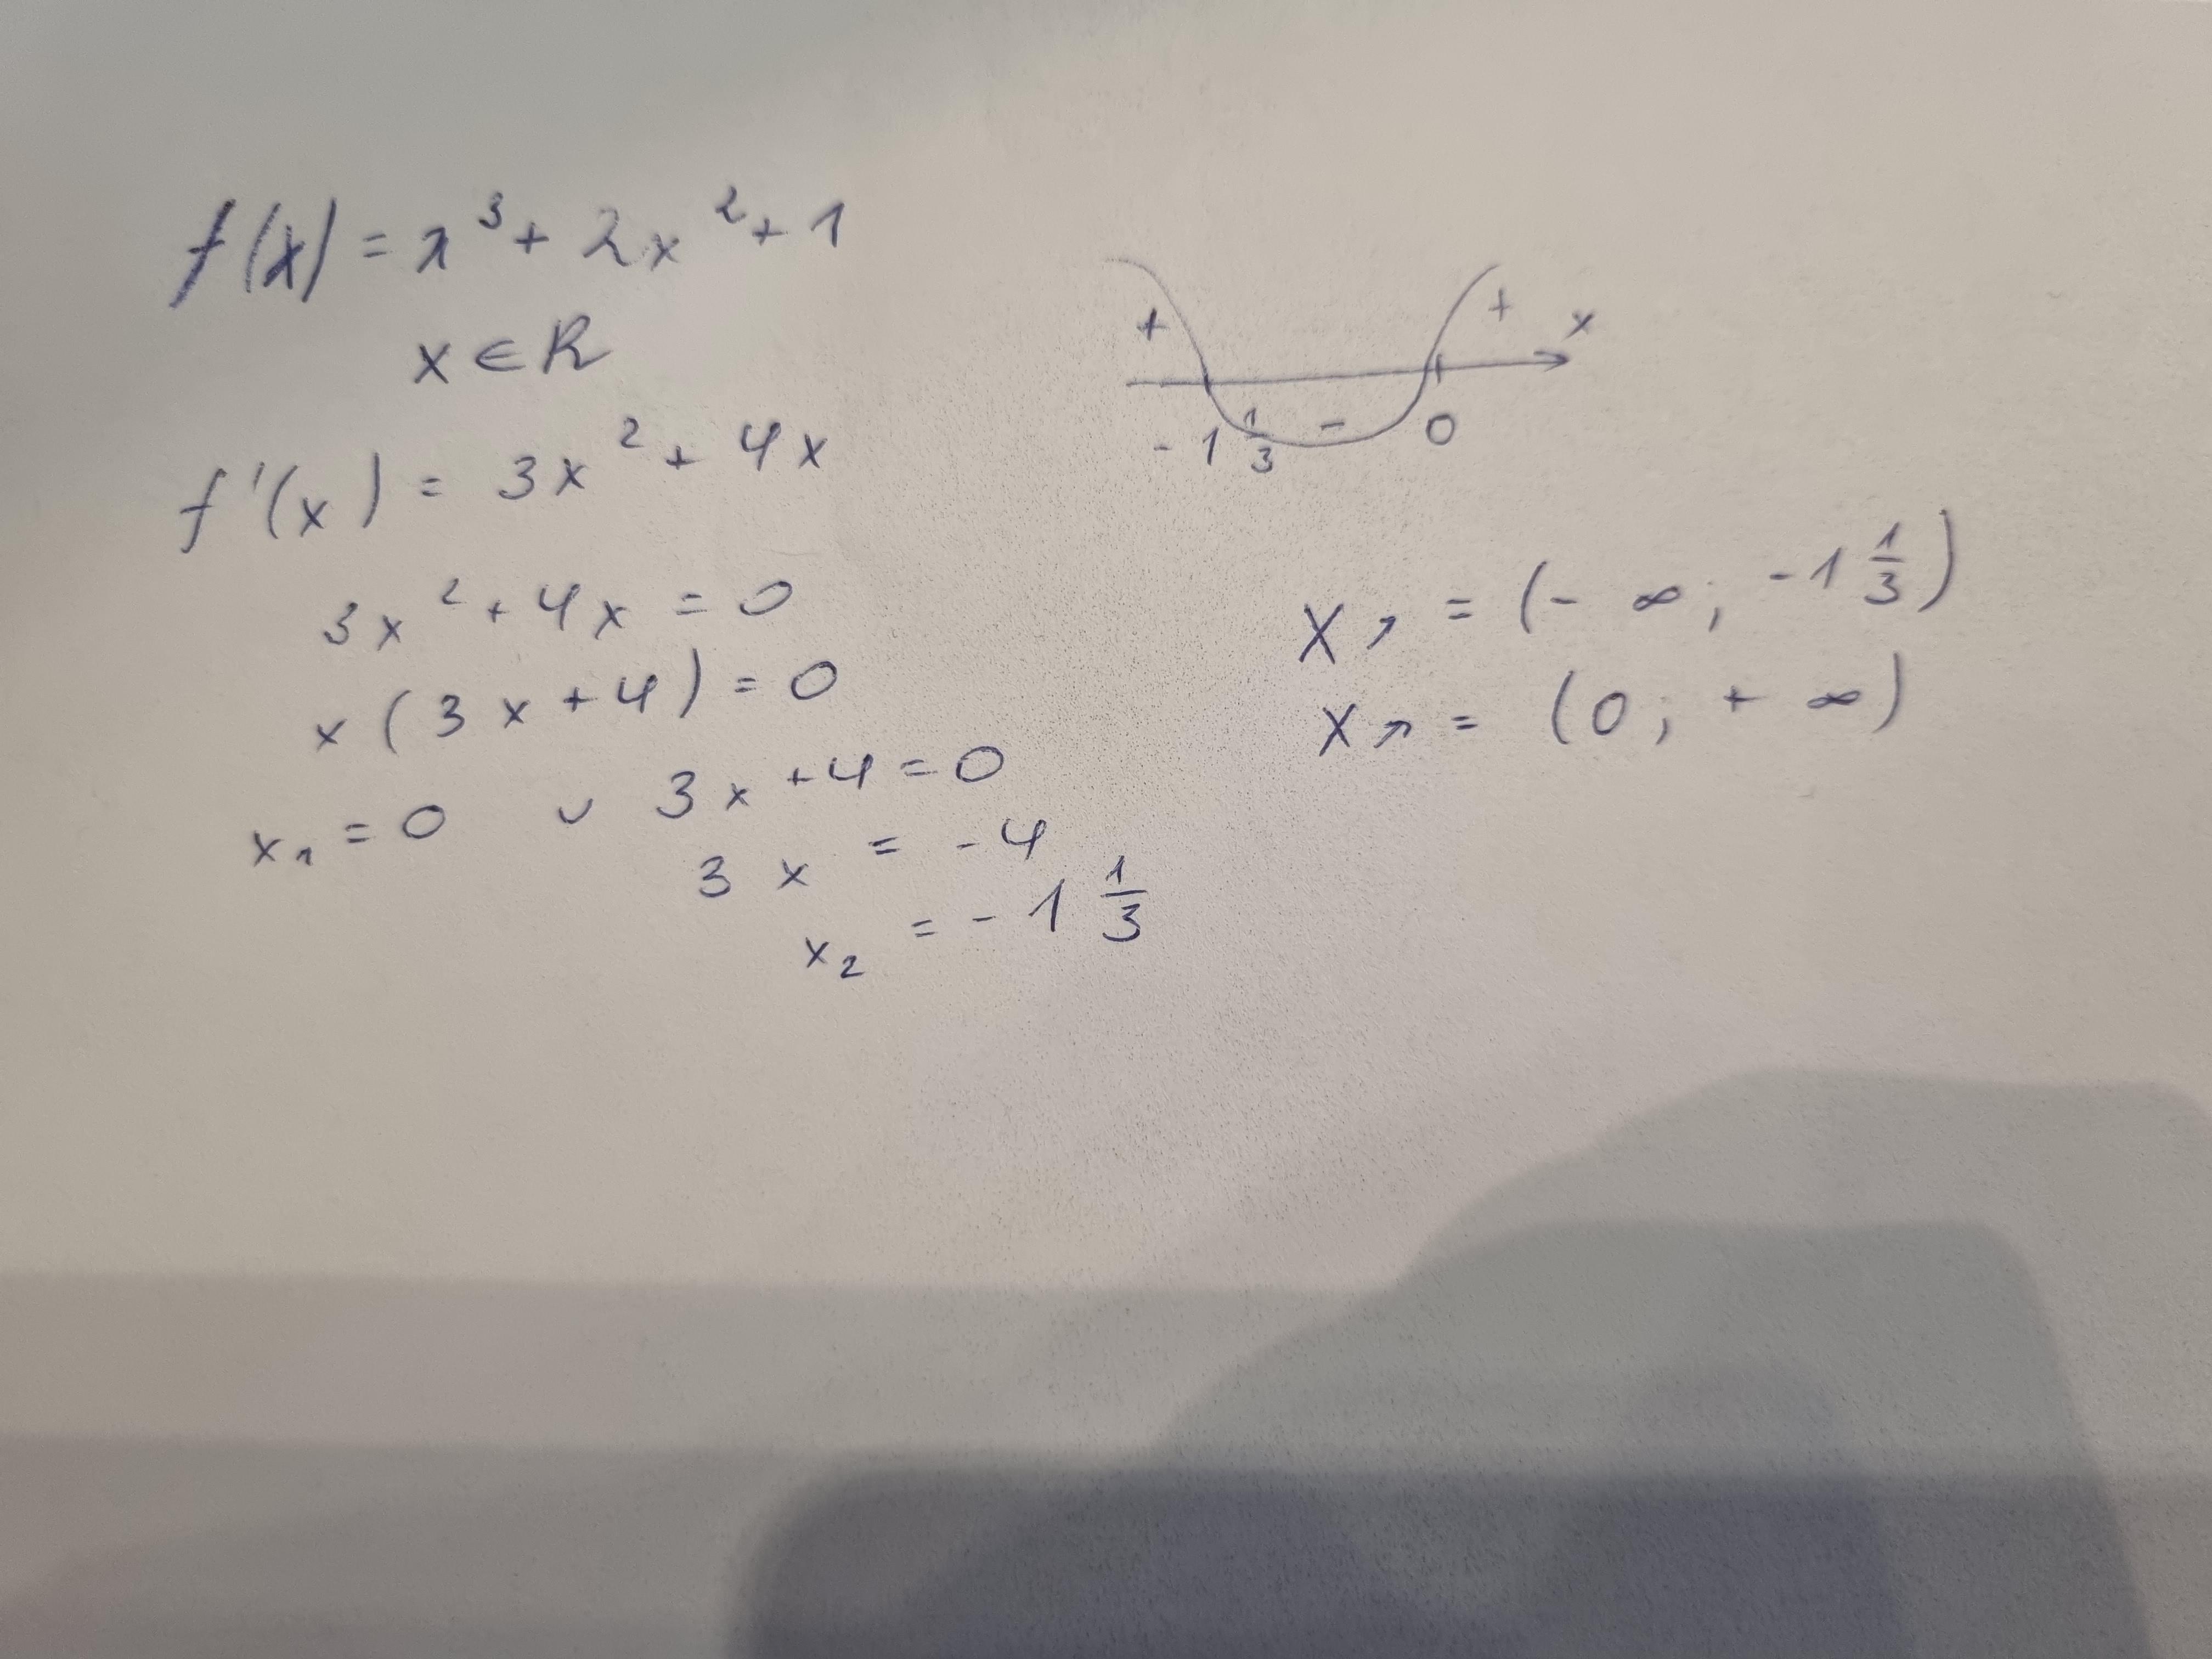 f(x) = x³ + 2x² + 1
x ∈ R
f'(x) = 3x² + 4x
3x² + 4x = 0
x(3x+4) = 0
x₁ = 0 ∪ 3x+4=0
3x = -4
x₂ = -1 1/3
+ + x
-1 1/3 - 0
X↗ = (-∞; -1 1/3)
X↗ = (0; +∞)